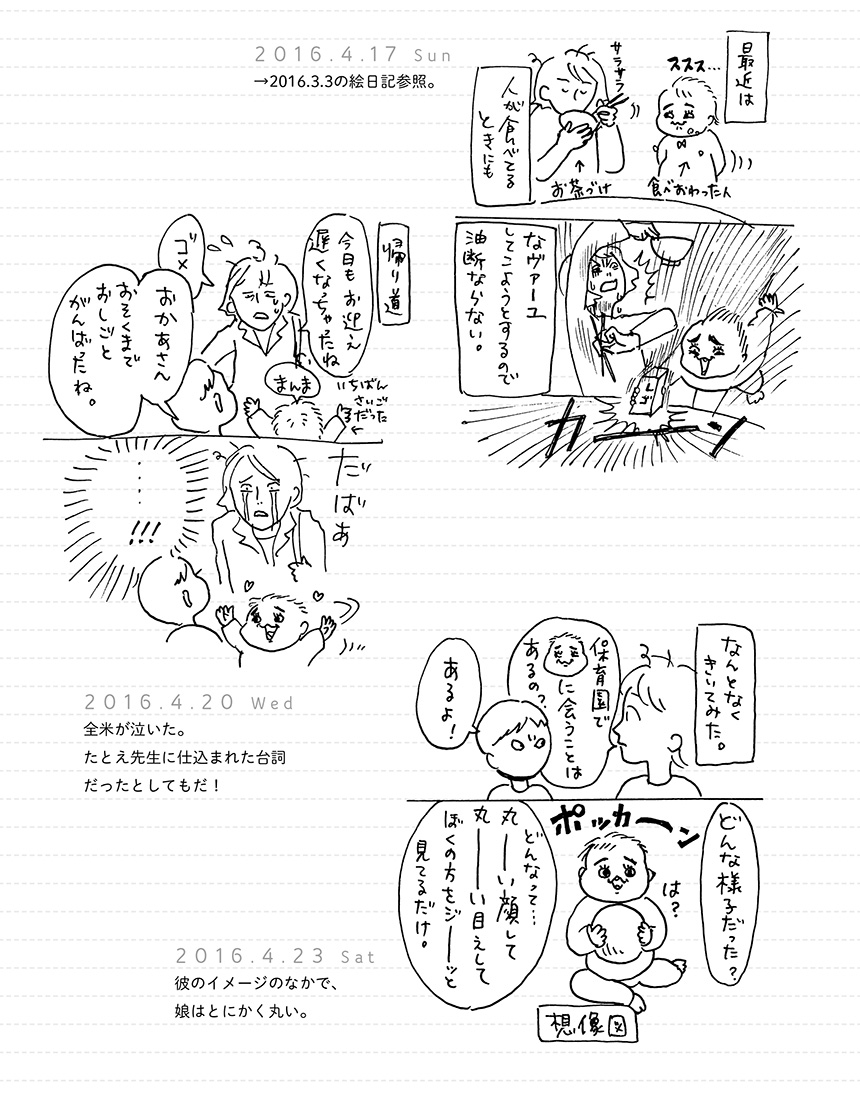 2016.4.17 Sun
→2016.3.3の絵日記参照。
最近は
ススス…
食べおわった人
サラサラ
お茶づけ
人が食べてる
ときにも
なヴァーユ
してこようとするので
油断ならない。
カーーン
帰り道
今日もお迎え
遅くなっちゃったね
ゴメ
おかあさん
おそくまで
おしごと
がんばったね。
まんま
いちばん
さいご
だった
だばあ
……
!!!
2016.4.20 Wed
全米が泣いた。
たとえ先生に仕込まれた台詞
だったとしてもだ！
なんとなく
きいてみた。
保育園で
に会うことは
あるの？
あるよ！
どんな様子だった？
ポッカーン
は？
どんなって…
丸ーーい顔して
丸ーーい目えして
ぼくの方をジーーッと
見てるだけ。
想像図
2016.4.23 Sat
彼のイメージのなかで、
娘はとにかく丸い。